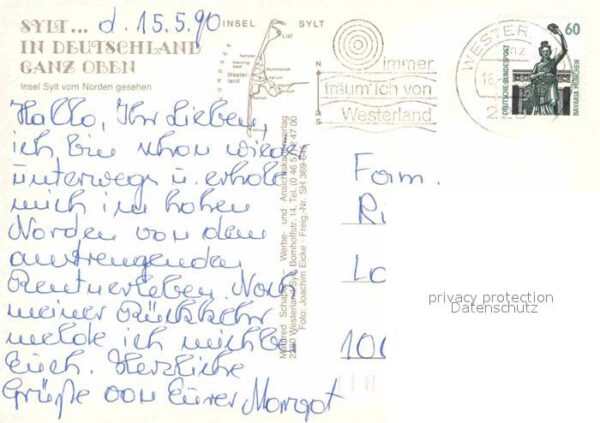 SYLT... d. 15.5.90
IN DEUTSCHLAND
GANZ OBEN
Insel Sylt vom Norden gesehen
INSEL SYLT
List
Kampen
Wester-
land
N
S
immer
träum' ich von
Westerland
WESTER
60
DEUTSCHE BUNDESPOST
BAVARIA MÜNCHEN
Hallo, Ihr Lieben,
ich bin schon wieder
unterwegs u. erhole
mich im hohen
Norden von dem
anstrengenden
Rentnerleben. Nach
meiner Rückkehr
melde ich mich bei
Euch. Herzliche
Grüße von Eurer Margot
Werbe- und Ansichtskartenverlag
2280 Westerland/Sylt
Foto: Joachim Eicke - Freig.-Nr. SH
Fam.
R
Lo
100
privacy protection
Datenschutz